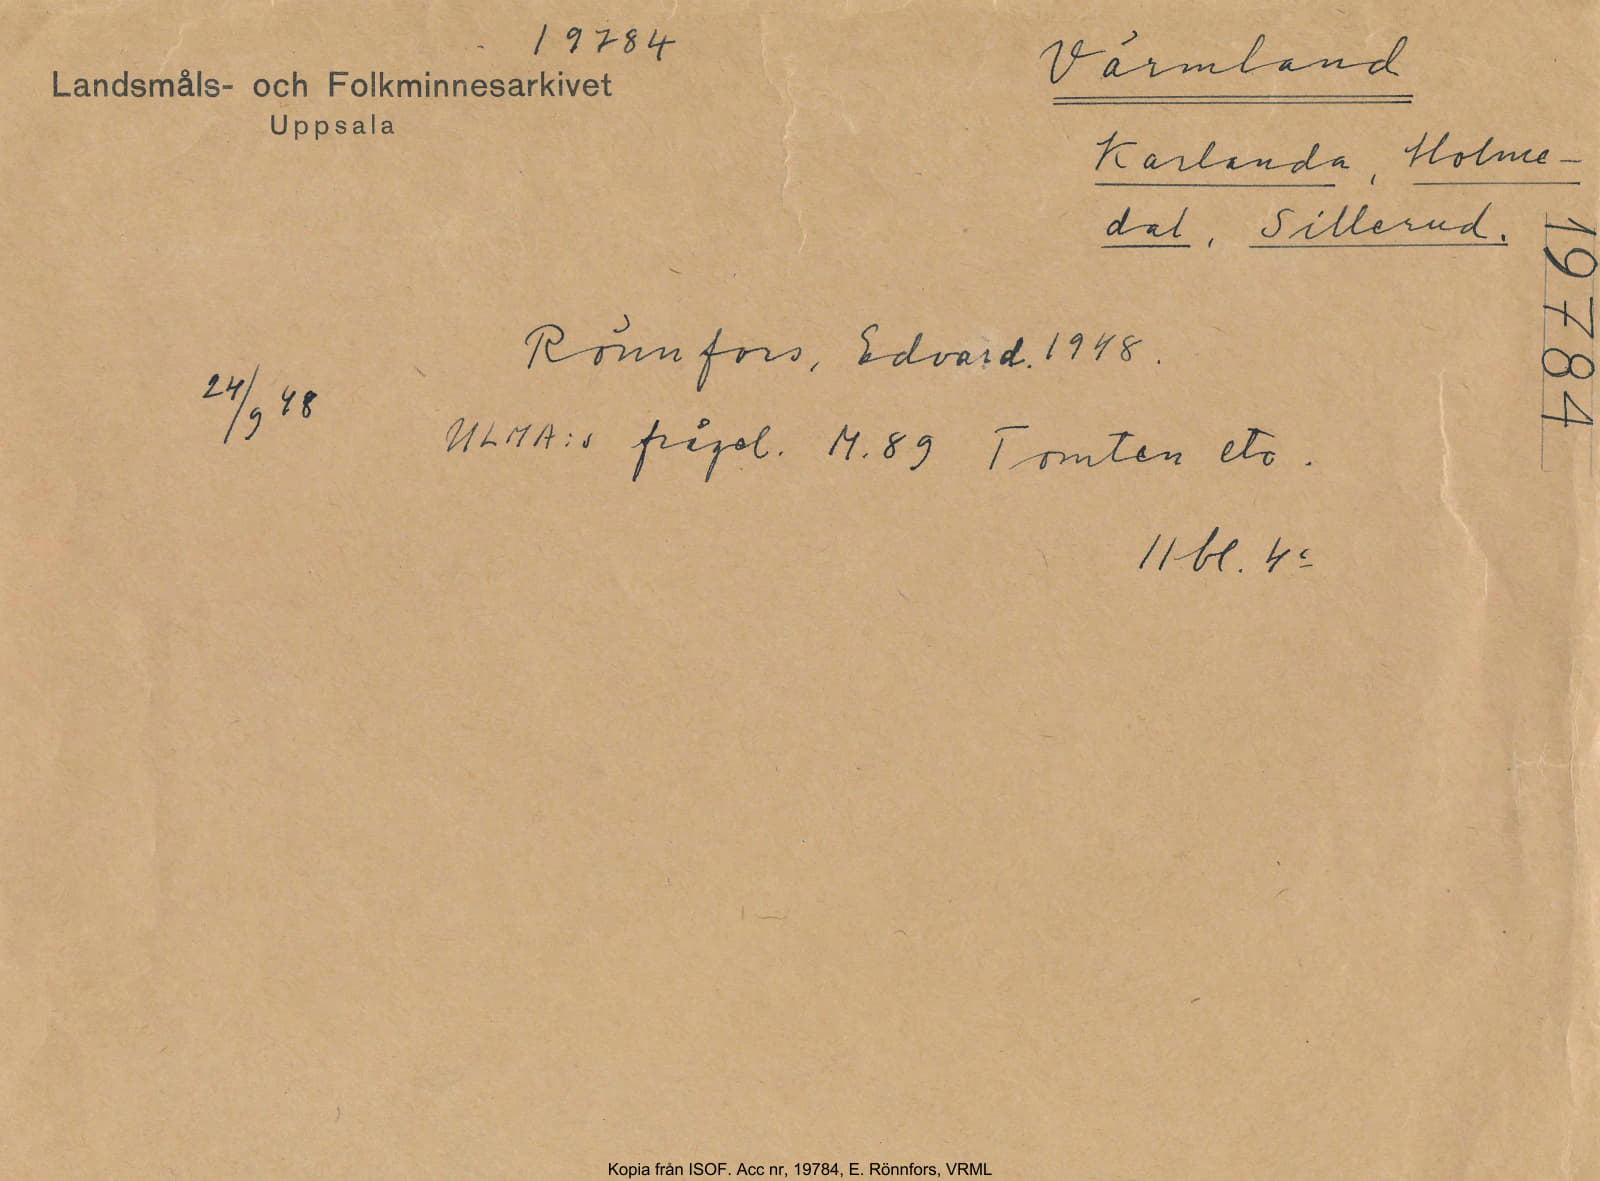 19784
Landsmåls- och Folkminnesarkivet
Uppsala
Värmland
Karlanda, Holme-
dal, Sillerud.
19784
Rönnfors, Edvard. 1948.
24/9 48
ULMA:s frågel. M.89 Tomten etc.
11 bl. 4º
Kopia från ISOF. Acc nr, 19784, E. Rönnfors, VRML